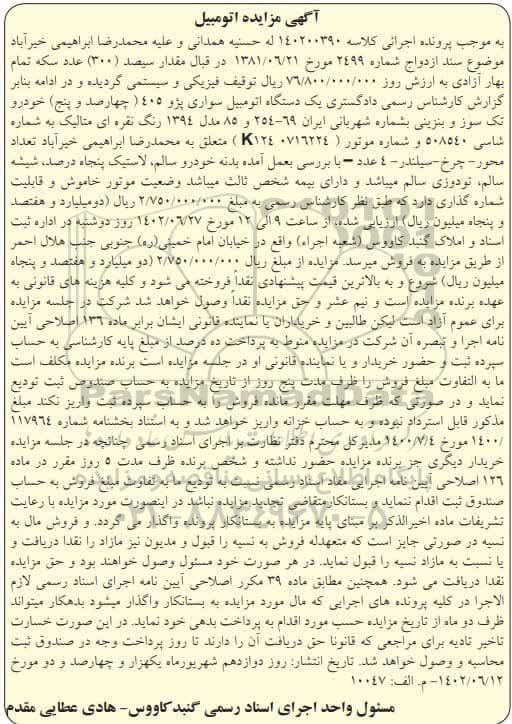 آگهی مزایده اتومبیل
به موجب پرونده اجرائی کلاسه ۱۴۰۲۰۰۳۹۰ له حسنیه همدانی و علیه محمدرضا ابراهیمی خیرآباد
موضوع سند ازدواج شماره ۲۴۹۹ مورخ ۱۳۸۱/۰۶/۲۱ در قبال مقدار سیصد (۳۰۰) عدد سکه تمام
بهار آزادی به ارزش روز ۷۶/۸۰۰/۰۰۰/۰۰۰ ریال توقیف فیزیکی و سیستمی گردیده و در ادامه بنابر
گزارش کارشناس رسمی دادگستری یک دستگاه اتومبیل سواری پژو ۴۰۵ ( چهارصد و پنج) خودرو
تک سوز و بنزینی بشماره شهربانی ایران ۶۹–۲۵۴ و ۸۵ مدل ۱۳۹۴ رنگ نقره ای متالیک به شماره
شاسی ۵۰۸۵۴۰ و شماره موتور ( ۰۷۱۶۲۲۴ K۱۲۴ ) متعلق به محمدرضا ابراهیمی خیرآباد تعداد
محور– چرخ–سیلندر– ۴ عدد – با بررسی بعمل آمده بدنه خودرو سالم، لاستیک پنجاه درصد، شیشه
سالم، تودوزی سالم میباشد و دارای بیمه شخص ثالث میباشد وضعیت موتور خاموش و قابلیت
شماره گذاری دارد که طبق نظر کارشناس رسمی به مبلغ ۲/۷۵۰/۰۰۰/۰۰۰ ریال (دومیلیارد و هفتصد
و پنجاه میلیون ریال) ارزیابی شده، از ساعت ۹ الی ۱۲ مورخ ۱۴۰۲/۰۶/۲۷ روز دوشنبه در اداره ثبت
اسناد و املاک گنبد کاووس (شعبه اجراء) واقع در خیابان امام خمینی(ره) جنوبی جنب هلال احمر
از طریق مزایده به فروش میرسد. مزایده از مبلغ ریال ۲/۷۵۰/۰۰۰/۰۰۰ (دو میلیارد و هفتصد و پنجاه
میلیون ریال) شروع و به بالاترین قیمت پیشنهادی نقداً فروخته می شود و کلیه هزینه های قانونی به
عهده برنده مزایده است و نیم عشر و حق مزایده نقداً وصول خواهد شد شرکت در جلسه مزایده
برای عموم آزاد است لیکن طالبین و خریداران یا نماینده قانونی ایشان برابر ماده ۱۳۶ اصلاحی آیین
نامه اجرا و تبصره آن شرکت در مزایده منوط به پرداخت ده درصد از مبلغ پایه کارشناسی به حساب
سپرده ثبت و حضور خریدار و یا نماینده قانونی او در جلسه مزایده است برنده مزایده مکلف است
ما به التفاوت مبلغ فروش را ظرف مدت پنج روز از تاریخ مزایده به حساب صندوق ثبت تودیع
نماید و در صورتی که ظرف مهلت مقرر مانده فروش را به حساب سپرده ثبت واریز نکند مبلغ
مذکور قابل استرداد نبوده و به حساب خزانه واریز خواهد شد و به استناد بخشنامه شماره ۱۱۷۹۶۴
/۱۴۰۰ مورخ ۱۴۰۰/۷/۴ مدیرکل محترم دفتر نظارت بر اجرای اسناد رسمی چنانچه در جلسه مزایده
خریدار دیگری جز برنده مزایده حضور نداشته و شخص برنده ظرف مدت ۵ روز مقرر در ماده
۱۳۶ اصلاحی آیین نامه اجرایی مفاد اسناد رسمی نسبت به تودیع ما به تفاوت مبلغ فروش به حساب
صندوق ثبت اقدام ننماید و بستانکار متقاضی تجدید مزایده نباشد در اینصورت مورد مزایده با رعایت
تشریفات ماده اخیرالذکر بر مبنای پایه مزایده به بستانکار پرونده واگذار می گردد. و فروش مال به
نسیه در صورتی جایز است که متعهدله فروش به نسیه را قبول و مدیون نیز مازاد را نقدا دریافت و
یا نسبت به مازاد نسیه را قبول نماید. در هر صورت خود مسئول وصول خواهند بود و حق مزایده
نقدا دریافت می شود. همچنین مطابق ماده ۳۹ مکرر اصلاحی آیین نامه اجرای اسناد رسمی لازم
الاجرا در کلیه پرونده های اجرایی که مال مورد مزایده به بستانکار واگذار میشود بدهکار میتواند
ظرف دو ماه از تاریخ مزایده حسب مورد اقدام به پرداخت بدهی خود نماید. در این صورت خسارت
تاخیر تادیه برای مراجعی که قانونا حق دریافت آن را دارند تا روز پرداخت وجه در صندوق ثبت
محاسبه و وصول خواهد شد. تاریخ انتشار: روز دوازدهم شهریورماه یکهزار و چهارصد و دو مورخ
۱۴۰۲/۰۶/۱۲– م. الف: ۱۰۰۴۷
مسئول واحد اجرای اسناد رسمی گنبدکاووس– هادی عطایی مقدم
ParsNamadData
۰۲۱–۸۸۳۴۹۶۷۰–۵